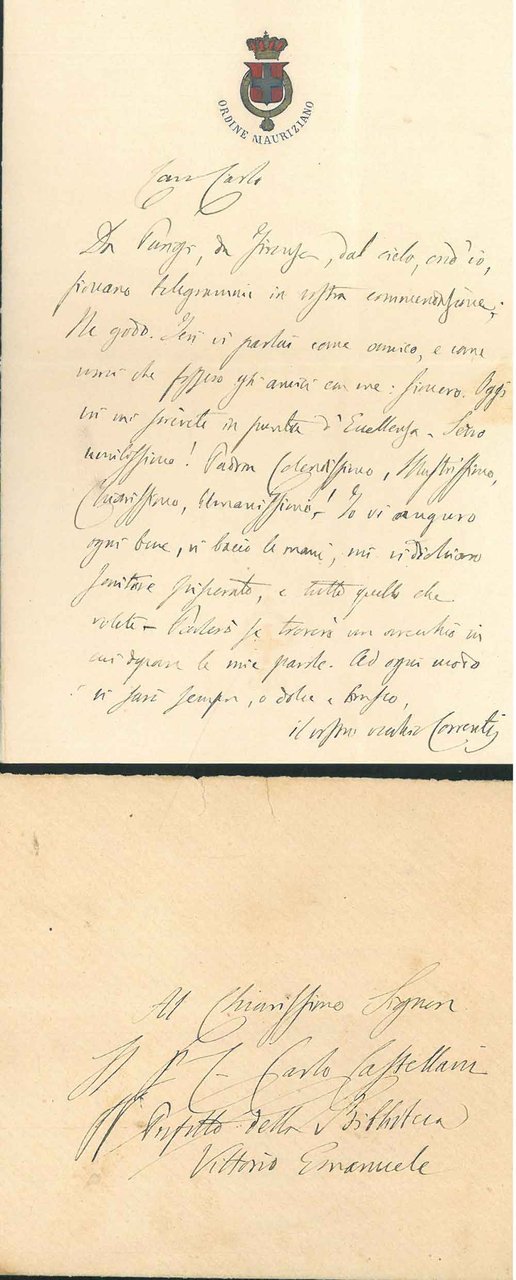 ORDINE MAURIZIANO
Caro Carlo
Da Parigi, da Firenze, dal cielo, cred'io,
piovano telegrammi in vostra commendazione;
Ne godo. Ieri vi parlai come amico, e come
che fossero gli amici con me: sincero. Oggi
vi mi in punta d'Eccellenza – Servo
umilissimo! Padron Colendissimo, Illustrissimo,
Chiarissimo, Umanissimo –! Io vi auguro
ogni bene, vi bacio le mani, mi vi dichiaro
servitore sviscerato, e tutto quello che
volete – se troverò un orecchio in
cui le mie parole. Ad ogni modo
vi sarò sempre, o dolce o brusco,
il vostro vecchio Correnti
Al Chiarissimo Signor
Carlo Castellani
Prefetto della Biblioteca
Vittorio Emanuele